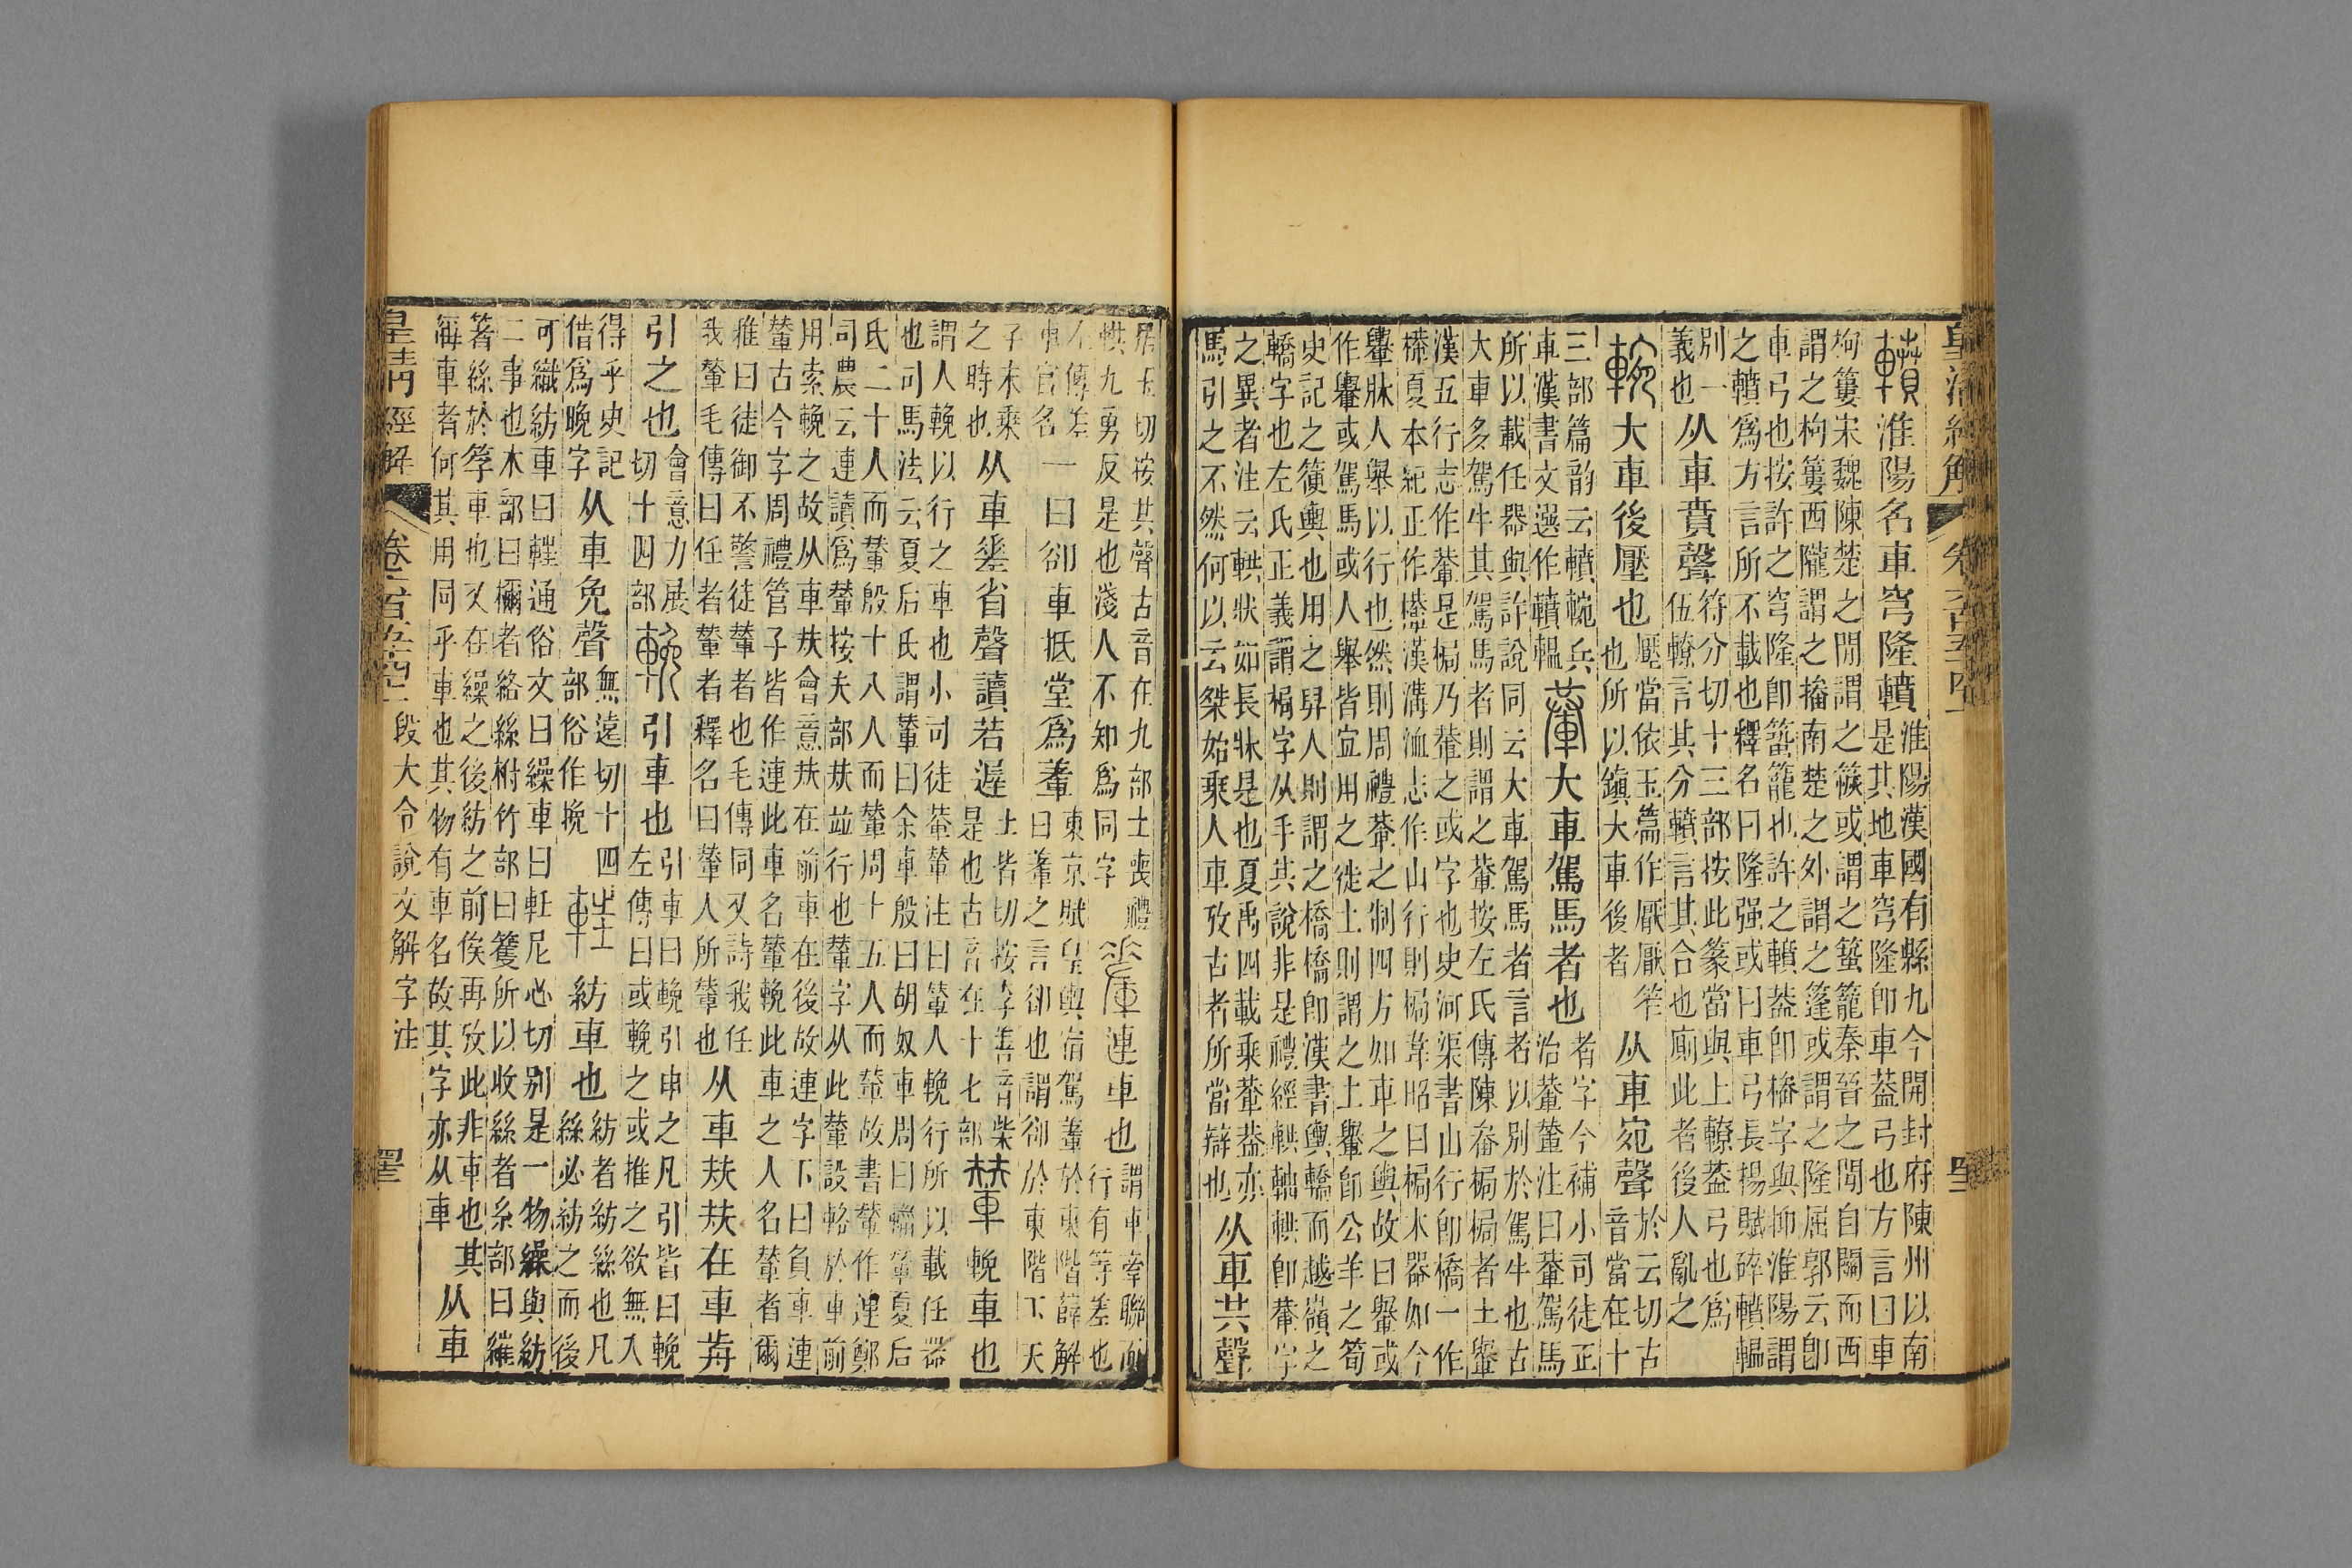 皇清經解 卷六百五十四上
轒 淮陽名車穹隆轒
淮陽漢國有縣九今開封府陳州以南
是其地車穹隆卽車葢弓也方言曰車
枸簍宋魏陳楚之閒謂之或謂之籠秦晉之閒自關而西
謂之枸簍西隴謂之㯠南楚之外謂之篷或謂之隆屈郭云卽
車弓也按許之穹隆卽籠也許之轒葢卽㯠字與抑淮陽謂
之轒爲方言所不載也釋名曰隆强或曰車弓長楊賦碎轒輼
別一
義也
从車賁聲
符分切十三部按此篆當與上轑葢弓也爲
伍轑言其分轒言其合也廁此者後人亂之
䡝 大車後壓也
壓當依玉篇作厭厭笮
也所以鎭大車後者
从車宛聲
於云切古
音當在十
三部篇韵云轒䡝兵
車漢書文選作轒輼
輂 大車駕馬者也
者字今補小司徒正
治輂輦注曰輂駕馬
所以載任器與許說同云大車駕馬者言者以別於駕牛也古
大車多駕牛其駕馬者則謂之輂按左氏傳陳畚梮梮者土轝
漢五行志作輂是梮乃輂之或字也史河渠書山行卽橋一作
檋夏本紀正作檋漢溝洫志作山行則梮韋昭曰梮木器如今
轝牀人舉以行也然則周禮輂之制四方如車之輿故曰轝或
作轝或駕馬或人舉皆宜用之徙土則謂之土轝卽公羊之筍
史記之輿也用之舁人則謂之橋橋卽漢書輿轎而越嶺之
轎字也左氏正義謂梮字从手共說非是禮經輁軸輁卽輂字
之異者注云輁狀如長牀是也夏禹四載乘輂葢亦
馬引之不然何以云桀始乘人車攷古者所當辯也
从車共聲
居玉切按其聲古音在九部士喪禮
輁九勇反是也淺人不知爲同字
連車也
謂車牽聯而
行有等差也
左傳差
車官名
一曰卻車抵堂爲𨎌
東京賦皇輿宿駕𨎌於東階薛解
曰𨎌之言卻也謂卻於東階下天
子未乘
之時也
从車差省聲讀若遲
士皆切按李善音柴
是也古音在十七部
輦 輓車也
謂人輓以行之車也小司徒輂輦注曰輦人輓行所以載任器
也司馬法云夏后氏謂輦曰余車殷曰胡奴車周曰輜輦夏后
氏二十人而輦殷十八人而輦周十五人而輦故書輦作連鄭
司農云連讀爲輦按夫部㚘竝行也輦字从此輦設輅於車前
用索輓之故从車㚘會意㚘在前車在後故連字下曰負車連
輦古今字周禮管子皆作連此車名輦輓此車之人名輦者爾
雅曰徒御不警徒輦者也毛傳同又詩我任
我輦毛傳曰任者輦者釋名曰輦人所輦也
从車㚘㚘在車歬
引之也
會意力展
切十四部
輓 引車也
引車曰輓引申之凡引皆曰輓
左傳曰或輓之或推之欲無入
得乎史記
借爲晚字
从車免聲
無遠切十四
部俗作挽
紡車也
紡者紡絲也凡
絲必紡之而後
可織紡車曰軖通俗文曰繰車曰軖尼心切別是一物繰與紡
二事也木部曰檷者絡絲柎竹部曰籰所以收絲者糸部曰繀
箸絲於筟車也又在繰之後紡之前俟再攷此非車也其
車者何其用同乎車也其物有車名故其字亦从車
从車
皇清經解 卷六百五十四上 段大令說文解字注